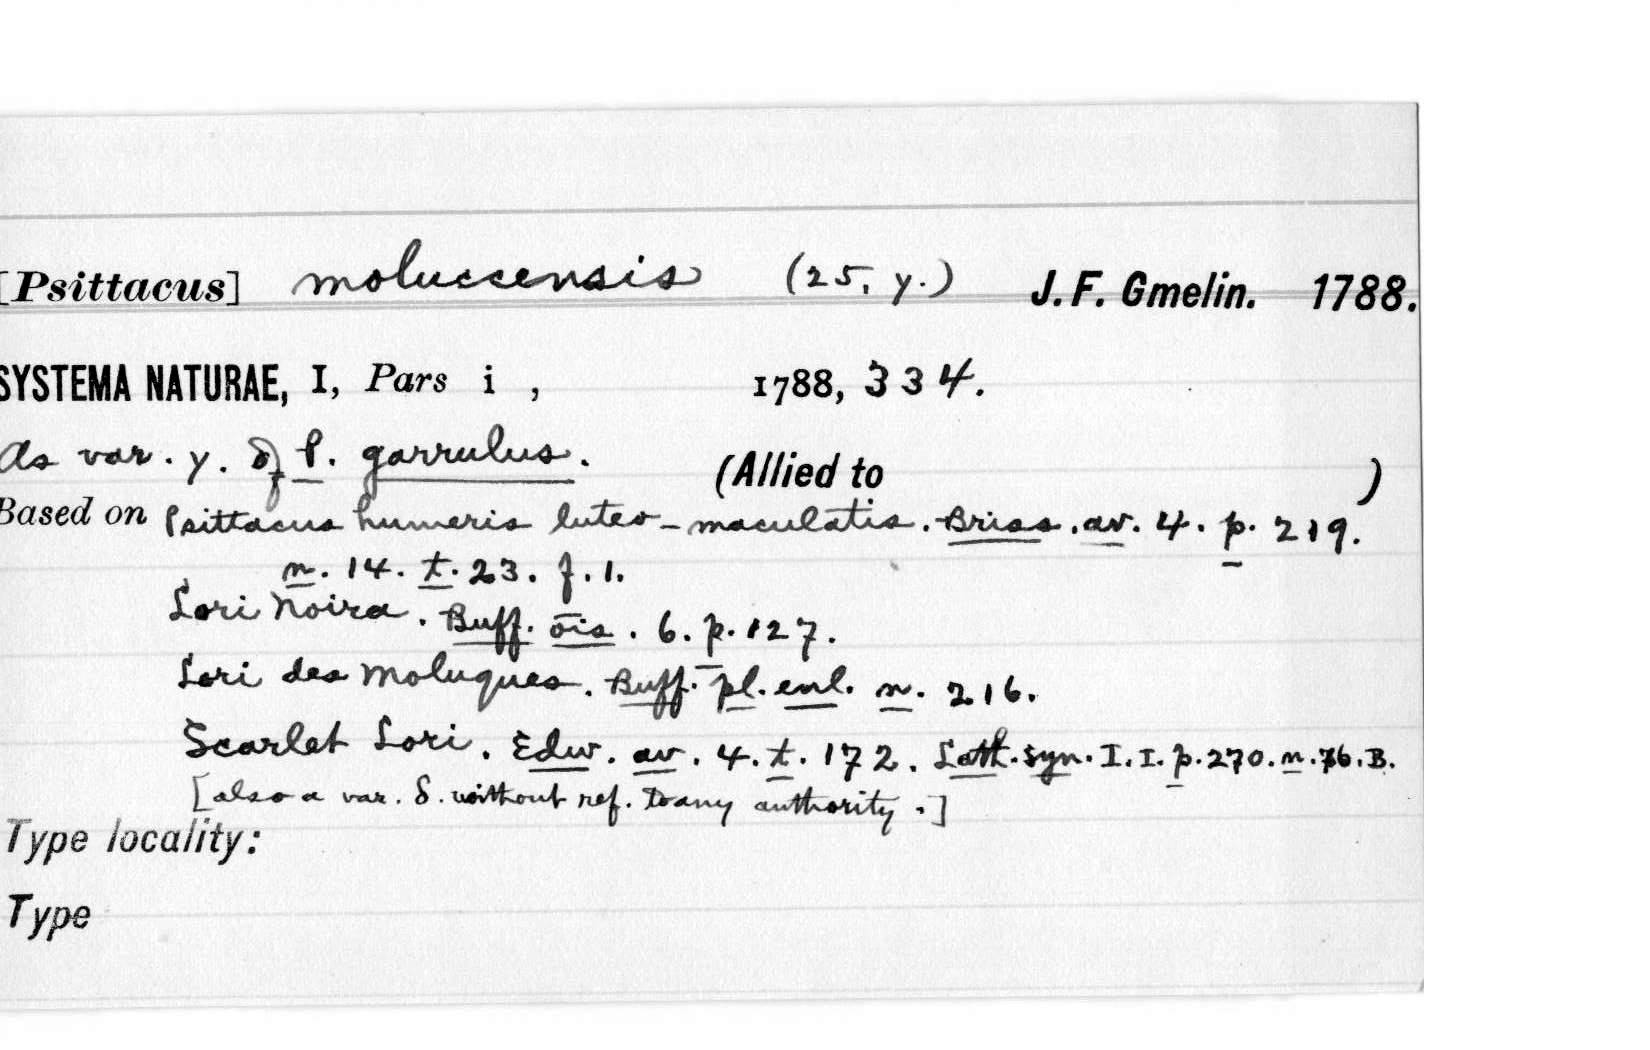 [Psittacus] moluccensis (25, γ.) J. F. Gmelin. 1788.
SYSTEMA NATURAE, I, Pars i , 1788, 334.
As var. γ. of P. garrulus. (Allied to )
Based on Psittacus humeris luteo-maculatis. Briss. av. 4. p. 219.
n. 14. t. 23. f. 1.
Lori Noira. Buff. ois. 6. p. 127.
Lori des Moluques. Buff. pl. enl. n. 216.
Scarlet Lori. Edw. av. 4. t. 172. Lath. syn. I. I. p. 270. n. 76. B.
[also a var. δ. without ref. to any authority.]
Type locality:
Type